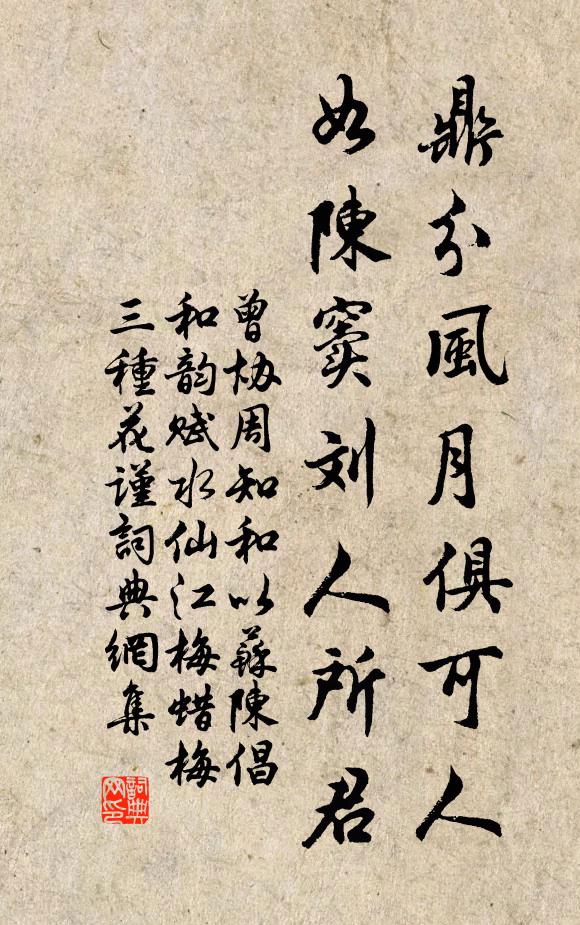 鼎分風月俱可人
如陳竇刘人所君
曾协周知和以蘇陳倡
和韵赋水仙江梅蜡梅
三種花谨詞典網集
詞典网印